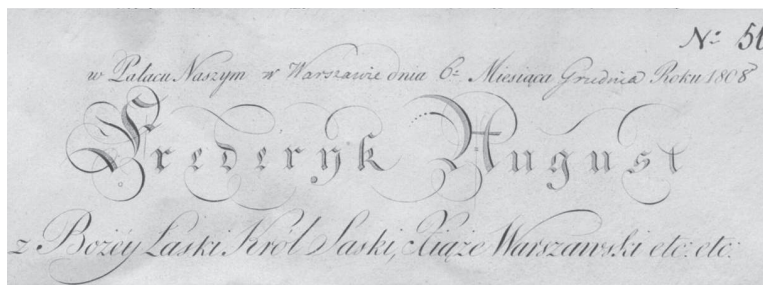 N: 50
w Pałacu Naszym w Warszawie dnia 6: Miesiąca Grudnia Roku 1808
Frederyk August
z Bożéy Łaski Król Saski, Xiąże Warszawski etc: etc: